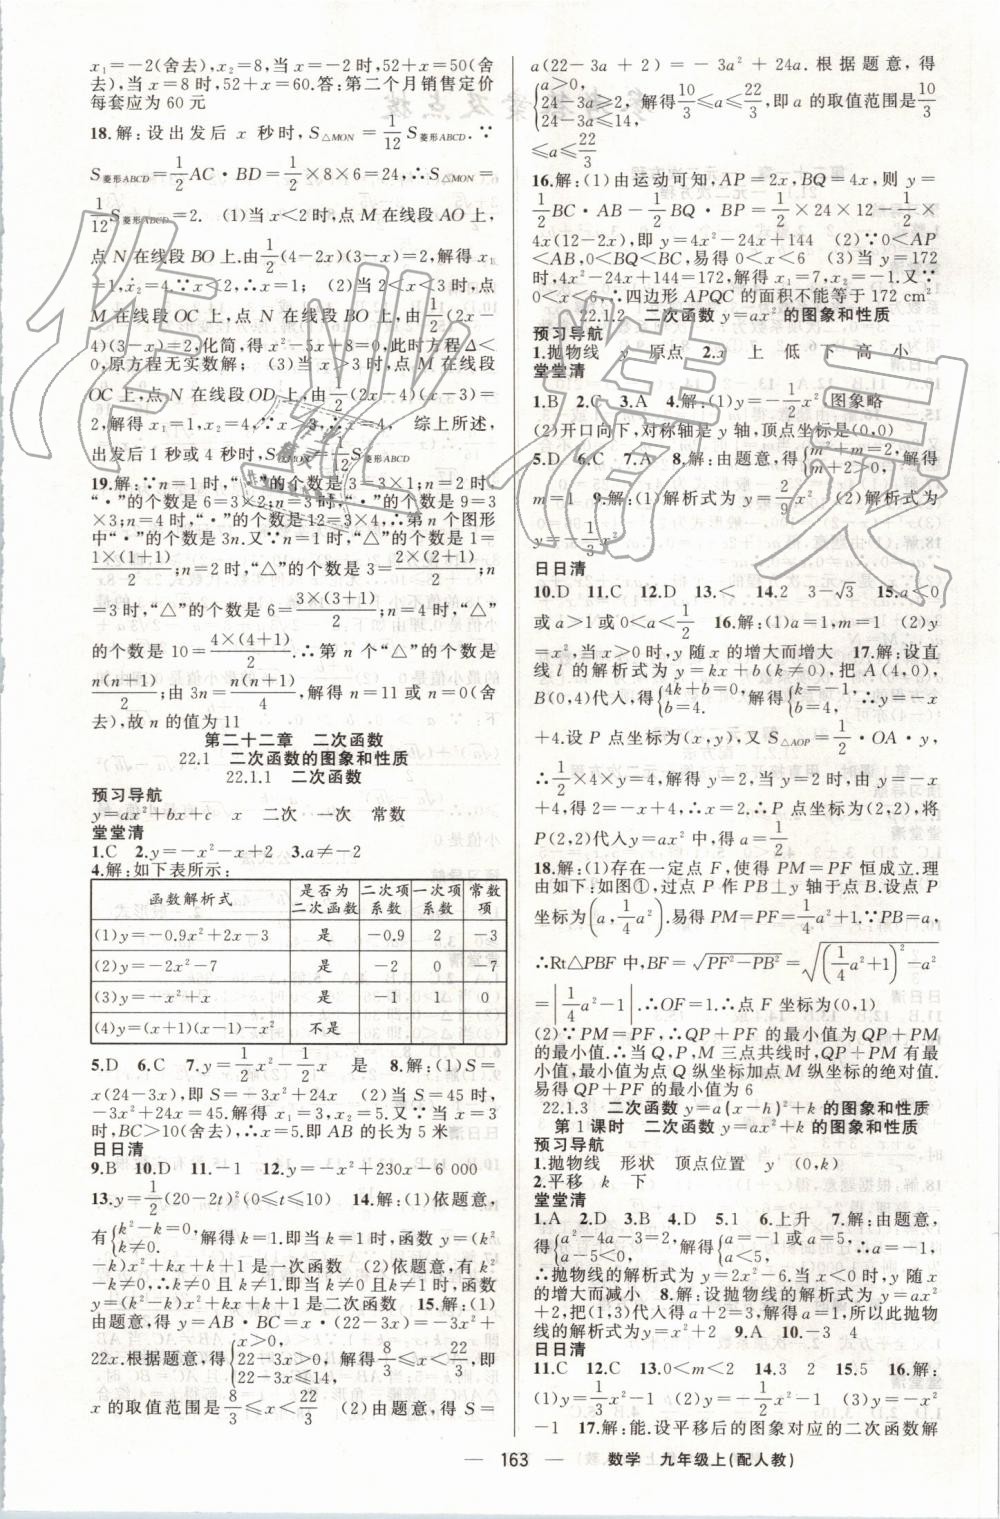 x₁=-2(舍去),x₂=8,当x=-2时,52+x=50(舍
去),当x=8时,52+x=60.答:第二个月销售定价
每套应为60元
18.解:设出发后x秒时,S△MON=1/12 S菱形ABCD.∵
S菱形ABCD=1/2 AC·BD=1/2×8×6=24,∴S△MON=
1/12 S菱形ABCD=2. (1)当x<2时,点M在线段AO上,
点N在线段BO上,由1/2(4-2x)(3-x)=2,解得x₁
=1,x₂=4.∵x<2,∴x=1; (2)当2<x<3时,点
M在线段OC上,点N在线段BO上,由1/2(2x-
4)(3-x)=2,化简,得x²-5x+8=0,此时方程Δ<
0,原方程无实数解; (3)当x>3时,点M在线段
OC上,点N在线段OD上,由1/2(2x-4)(x-3)=
2,解得x₁=1,x₂=4,∵x>3,∴x=4, 综上所述,
出发后1秒或4秒时,S△MON=1/12 S菱形ABCD
19.解:∵n=1时,“·”的个数是3=3×1;n=2时,
“·”的个数是6=3×2;n=3时,“·”的个数是9=3
×3;n=4时,“·”的个数是12=3×4,∴第n个图形
中“·”的个数是3n.又∵n=1时,“△”的个数是1=
1×(1+1)/2;n=2时,“△”的个数是3=2×(2+1)/2;n
=3时,“△”的个数是6=3×(3+1)/2;n=4时,“△”
的个数是10=4×(4+1)/2.∴第n个“△”的个数是
n(n+1)/2;由3n=n(n+1)/2,解得n=11或n=0(舍
去),故n的值为11
第二十二章 二次函数
22.1 二次函数的图象和性质
22.1.1 二次函数
预习导航
y=ax²+bx+c x 二次 一次 常数
堂堂清
1.C 2.y=-x²-x+2 3.a≠-2
4.解:如下表所示:
函数解析式 是否为二次函数 二次项系数 一次项系数 常数项
(1)y=-0.9x²+2x-3 是 -0.9 2 -3
(2)y=-2x²-7 是 -2 0 -7
(3)y=-x²+x 是 -1 1 0
(4)y=(x+1)(x-1)-x² 不是
5.D 6.C 7.y=1/2 x²-1/2 x 是 8.解:(1)S=
x(24-3x),即S=-3x²+24x (2)当S=45时,
-3x²+24x=45.解得x₁=3,x₂=5.又∵当x=3
时,BC>10(舍去),∴x=5.即AB的长为5米
日日清
9.B 10.D 11.-1 12.y=-x²+230x-6 000
13.y=1/2(20-2t)²(0≤t≤10) 14.解:(1)依题意,
有{k²-k=0, k≠0. 解得k=1.即当k=1时,函数y=(k²
-k)x²+kx+k+1是一次函数 (2)依题意,有k²
-k≠0,∴k≠0且k≠1.即当k≠0且k≠1时,函数
y=(k²-k)x²+kx+k+1是二次函数 15.解:(1)
由题意,得y=AB·BC=x(22-3x)=-3x²+
22x.根据题意,得{x>0, 22-3x>0, 22-3x≤14, 解得8/3≤x≤22/3,即
x的取值范围是8/3≤x≤22/3 (2)由题意,得S=
a(22-3a+2)=-3a²+24a.根据题意,得
{a>0, 24-3a≥2, 24-3a≤14, 解得10/3≤a≤22/3,即a的取值范围是10/3
≤a≤22/3
16.解:(1)由运动可知,AP=2x,BQ=4x,则y=
1/2 BC·AB-1/2 BQ·BP=1/2×24×12-1/2×
4x(12-2x),即y=4x²-24x+144 (2)∵0<AP
<AB,0<BQ<BC,易得0<x<6 (3)当y=172
时,4x²-24x+144=172,解得x₁=7,x₂=-1.又∵
0<x<6,∴四边形APQC的面积不能等于172 cm²
22.1.2 二次函数y=ax²的图象和性质
预习导航
1.抛物线 y 原点 2.x 上 低 下 高 小
堂堂清
1.B 2.C 3.A 4.解:(1)y=-1/2 x² 图象略
(2)开口向下,对称轴是y轴,顶点坐标是(0,0)
5.D 6.C 7.A 8.解:由题意,得{m²+m=2, m+2>0, 解得
m=1 9.解:(1)解析式为y=2/9 x² (2)解析式为
y=-1/3 x²
日日清
10.D 11.C 12.D 13.< 14.2 3-√3 15.a<0
或a>1或0<a<1/2 16.解:(1)a=1,m=1 (2)y
=x²,当x>0时,y随x的增大而增大 17.解:设直
线l的解析式为y=kx+b(k≠0),把A(4,0),
B(0,4)代入,得{4k+b=0, b=4. 解得{k=-1, b=4. ∴y=-x
+4.设P点坐标为(x,y),又∵S△AOP=1/2·OA·y,
∴1/2×4×y=4,∴y=2,当y=2时,由y=-x+4,
得2=-x+4,∴x=2,∴P点坐标为(2,2),将
P(2,2)代入y=ax²中,得a=1/2
18.解:(1)存在一定点F,使得PM=PF恒成立.理
由如下:如图①,过点P作PB⊥y轴于点B.设点P
坐标为(a,1/4 a²).易得PM=PF=1/4 a²+1.∵PB=a,
∴Rt△PBF中,BF=√(PF²-PB²)=√((1/4 a²+1)²-a²)
=|1/4 a²-1|.∴OF=1.∴点F坐标为(0,1)
(2)∵PM=PF,∴QP+PF的最小值为QP+PM
的最小值.∴当Q,P,M三点共线时,QP+PM有最
小值,最小值为点Q纵坐标加点M纵坐标的绝对值.
易得QP+PF的最小值为6
22.1.3 二次函数y=a(x-h)²+k的图象和性质
第1课时 二次函数y=ax²+k的图象和性质
预习导航
1.抛物线 形状 顶点位置 y (0,k)
2.平移 k 下
堂堂清
1.A 2.D 3.B 4.D 5.1 6.上升 7.解:由题意,
得{a²-4a-3=2, a-5<0, 解得{a=-1或a=5, a<5, ∴a=-1,
∴抛物线的解析式为y=2x²-6.当x<0时,y随x
的增大而减小 8.解:设抛物线的解析式为y=ax²
+2,把(1,3)代入得a+2=3,解得a=1,所以此抛物
线的解析式为y=x²+2 9.A 10.-3 4
日日清
11.C 12.C 13.0<m<2 14.3 2 15.5 16.解:
(1)y=-1/3 x² (2)y=-1/3 x²+2 (3)y=-1/3 x²
-1 17.解:能.设平移后的图象对应的二次函数解
— 163 — 数学 九年级上(配人教)
作业精灵